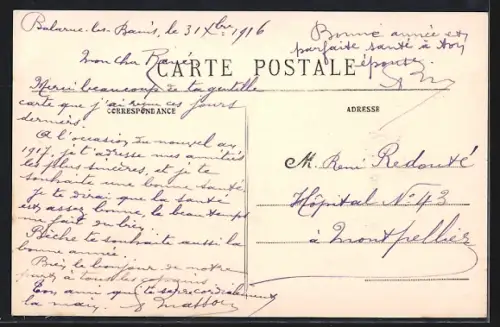 Balaruc-les-Bains, le 31 Xbre 1916
Bonne année et
parfaite santé à ton
épouse
Mon cher René
CARTE POSTALE
Merci beaucoup de ta gentille
carte que j'ai reçu ces jours
derniers.
CORRESPONDANCE
ADRESSE
A l'occasion du nouvel an
1917, je t'adresse mes amitiés
les plus sincères, et je te
souhaite une bonne santé.
Je te dirai que la santé
est assez bonne, le beau temps
me fait du bien.
Biche te souhaite aussi la
bonne année.
Bien le bonjour de notre
part à tous les copains
Ton ami que te serre cordialement
la main.
M. René Redouté
Hôpital N° 43
à Montpellier